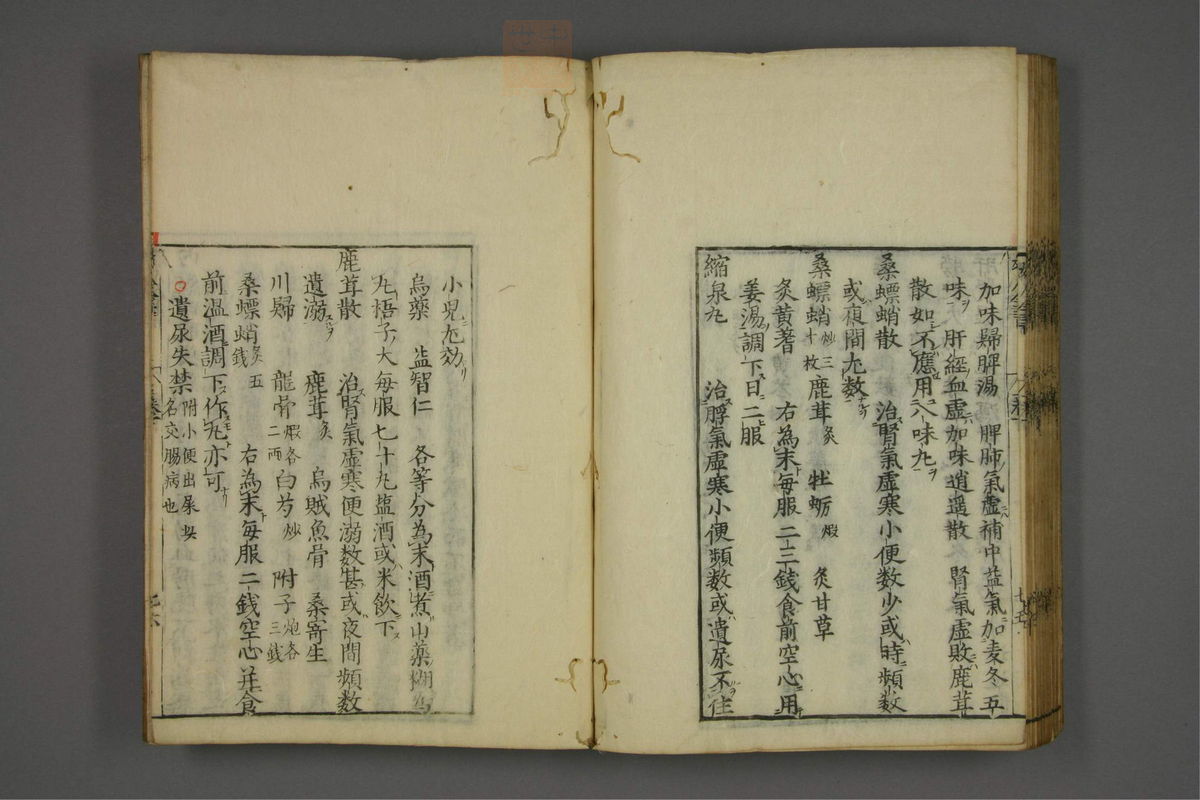 加味歸脾湯 脾肺氣虛補中益氣加麦冬五
味 肝經血虛加味逍遥散 腎氣虛敗鹿茸
散如不應用八味丸
桑螵蛸散 治腎氣虛寒小便数少或時頻数
或夜間尤数
桑螵蛸炒三十枚 鹿茸炙 牡蛎煆 炙甘草
炙黄耆 右為末每服二三錢食前空心用
姜湯調下日二服
縮泉丸 治脬氣虛寒小便頻数或遺尿不住
小兒尤効
烏藥 益智仁 各等分為末酒煮山藥糊為
丸梧子大每服七十丸盐酒或米飲下
鹿茸散 治腎氣虛寒便溺数甚或夜間頻数
遺溺 鹿茸炙 烏賊魚骨 桑寄生
川歸 龍骨煆各二両 白芍炒 附子炮各三錢
桑螵蛸炙五錢 右為末每服二錢空心并食
前溫酒調下作丸亦可
遺尿失禁附小便出屎名交腸病也